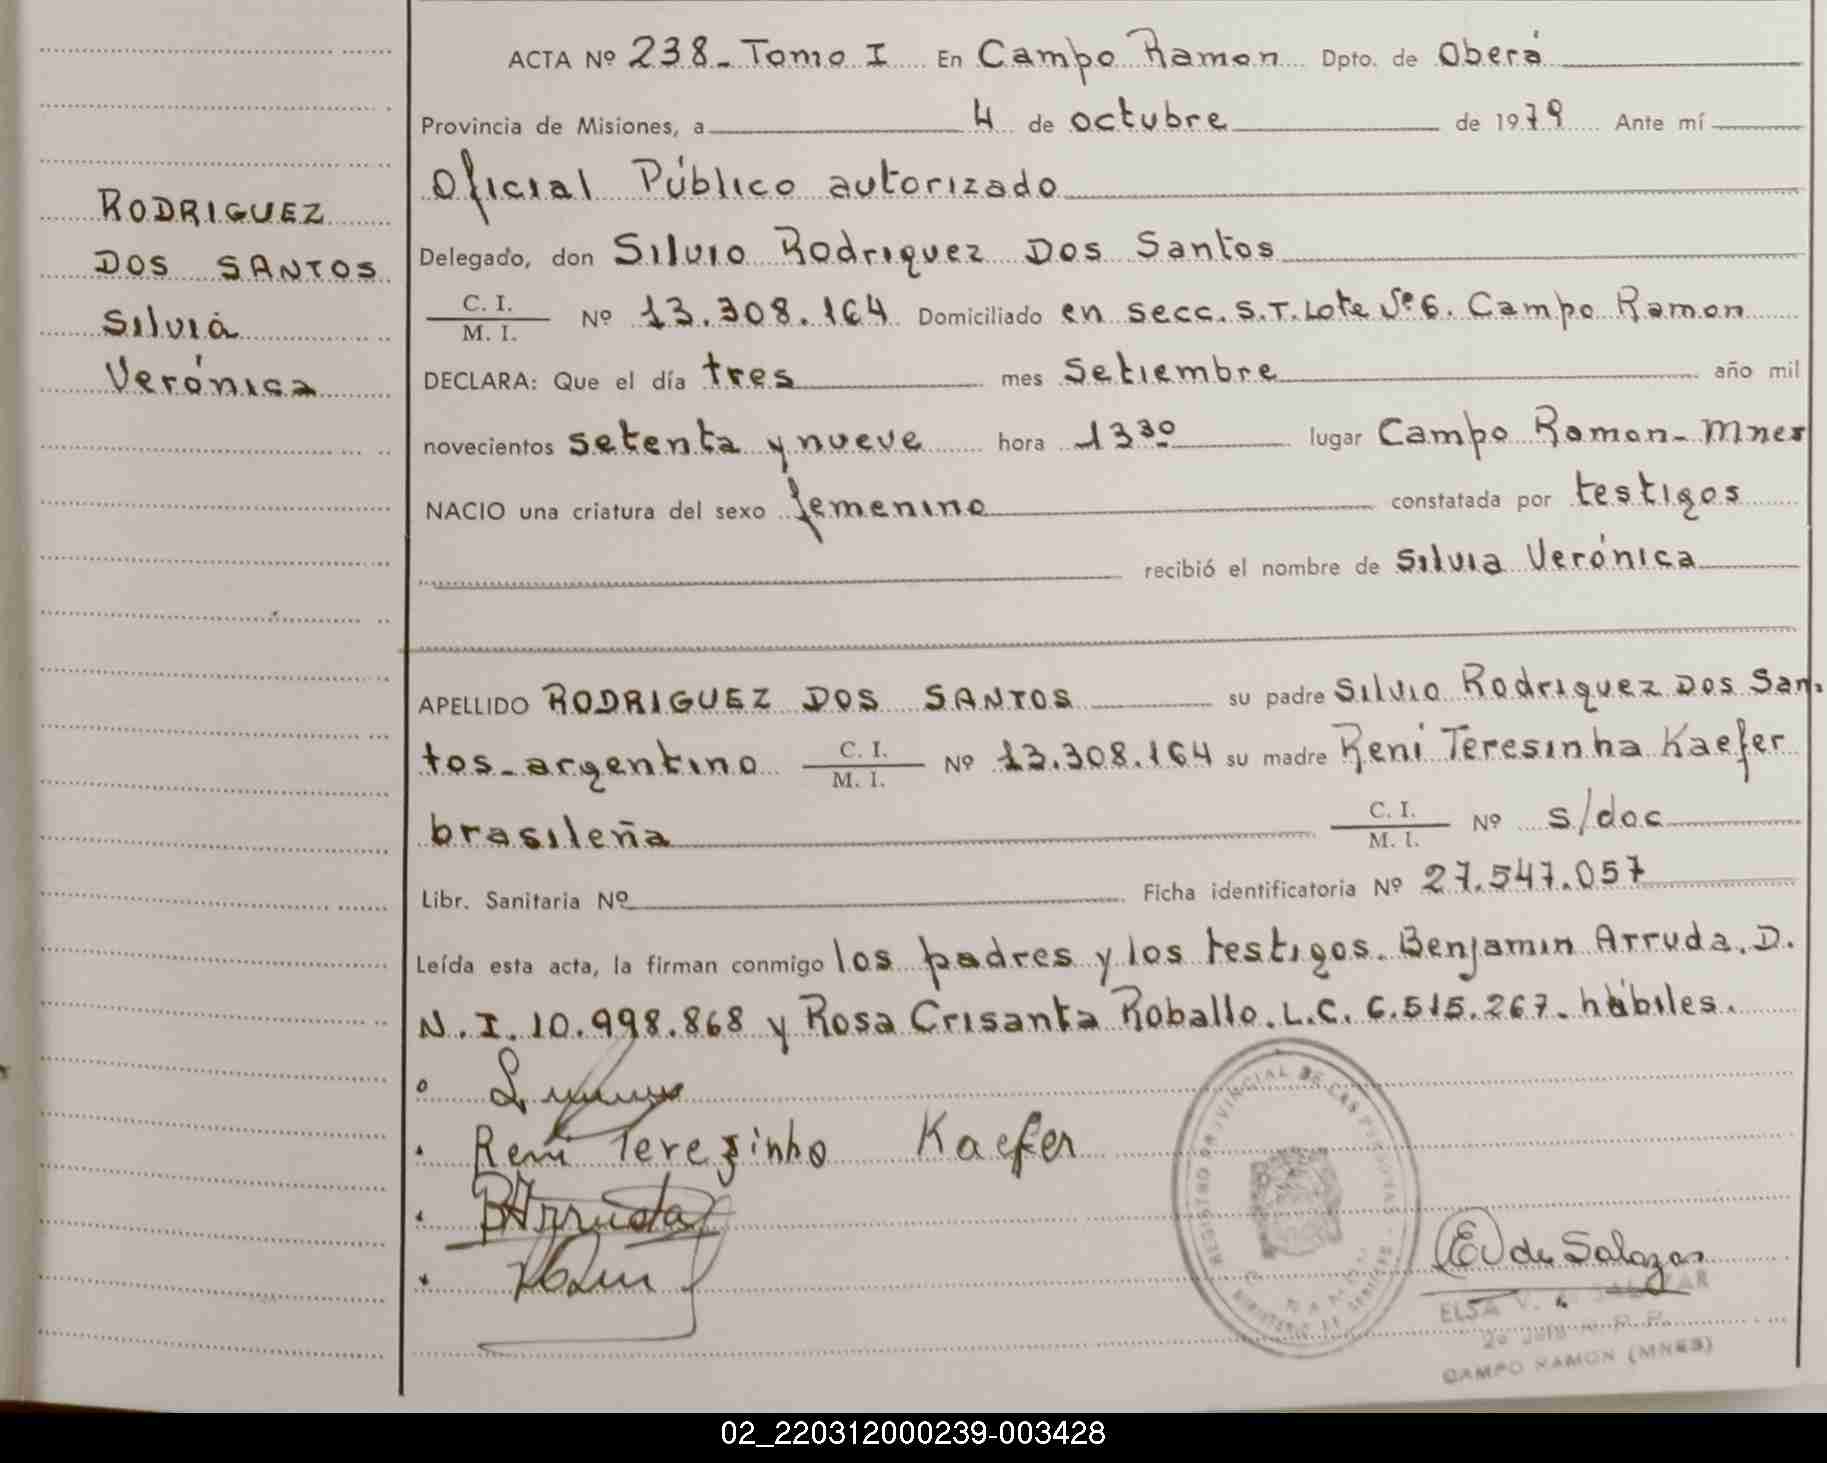 RODRIGUEZ
DOS SANTOS
Silvia
Verónica
ACTA Nº 238 - Tomo I En Campo Ramon Dpto. de Oberá
Provincia de Misiones, a 4 de octubre de 1979 Ante mí
Oficial Público autorizado
Delegado, don Silvio Rodriguez Dos Santos
C. I.
M. I. Nº 13.308.164 Domiciliado en secc. S.T. Lote Nº 6. Campo Ramon
DECLARA: Que el día tres mes setiembre año mil
novecientos setenta y nueve hora 13 30 lugar Campo Ramon - Mnes
NACIO una criatura del sexo femenino constatada por testigos
recibió el nombre de Silvia Verónica
APELLIDO RODRIGUEZ DOS SANTOS su padre Silvio Rodriguez Dos San-
tos - argentino C. I. M. I. Nº 13.308.164 su madre Reni Teresinha Kaefer
brasileña C. I. M. I. Nº s/doc
Libr. Sanitaria Nº Ficha identificatoria Nº 27.547.057
Leída esta acta, la firman conmigo los padres y los testigos. Benjamin Arruda. D.
N. I. 10.998.868 y Rosa Crisanta Roballo. L.C. 6.515.267 - hábiles.
Reni Terezinho Kaefer
BArruda
E V de Salazar
REGISTRO PROVINCIAL DE LAS PERSONAS
ELSA V. DE SALAZAR
CAMPO RAMON (MNES)
02_220312000239-003428